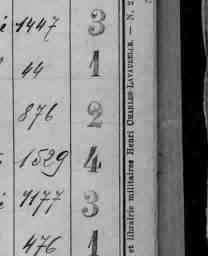 1447 3
44 1
876 2
1529 4
1177 3
476 1
et librairie militaires Henri CHARLES-LAVAUZELLE. — N. 2